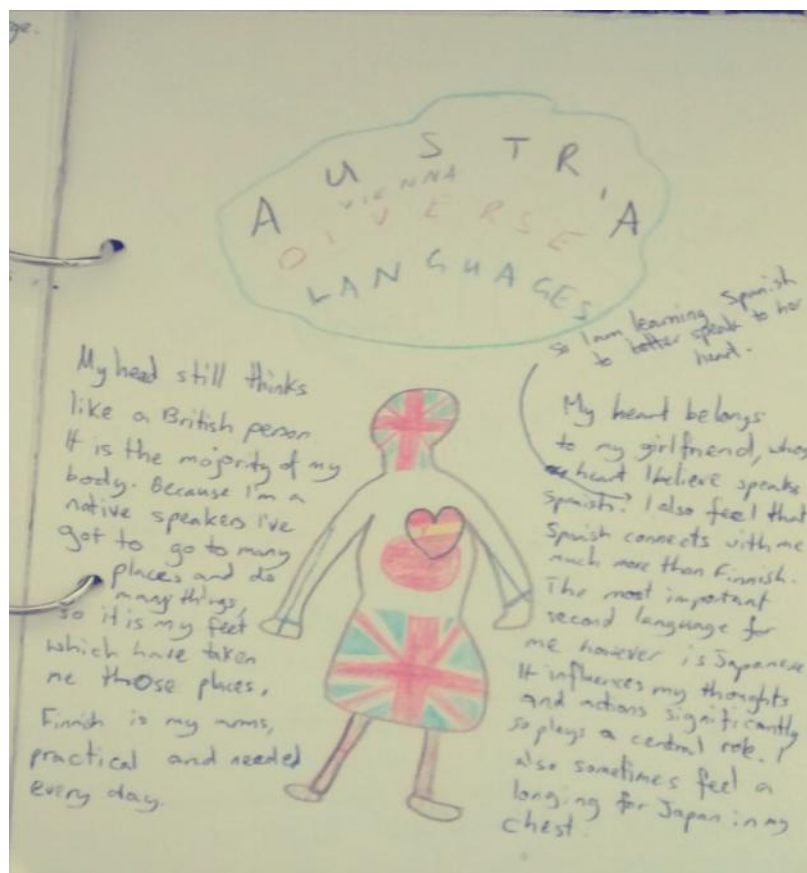 ge.
AUSTRIA
VIENNA
DIVERSE
LANGUAGES
so I am learning Spanish
to better speak to her
heart.
My head still thinks
like a British person
It is the majority of my
body. Because I'm a
native speakers I've
got to go to many
places and do
many things,
so it is my feet
which have taken
me those places.
Finnish is my arms,
practical and needed
every day.
My heart belongs
to my girlfriend, whos
heart I believe speaks
Spanish. I also feel that
Spanish connects with me
much more than Finnish.
The most important
second language for
me however is Japanese
It influences my thoughts
and actions significantly
so plays a central role. I
also sometimes feel a
longing for Japan in my
chest.